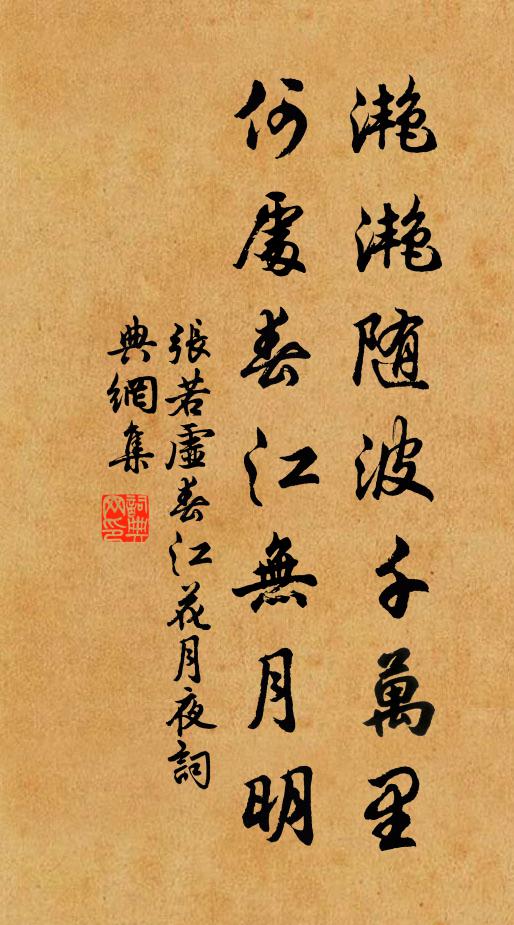 灔灔随波千萬里
何處春江無月明
張若虛春江花月夜詞
典網集
詞典網印